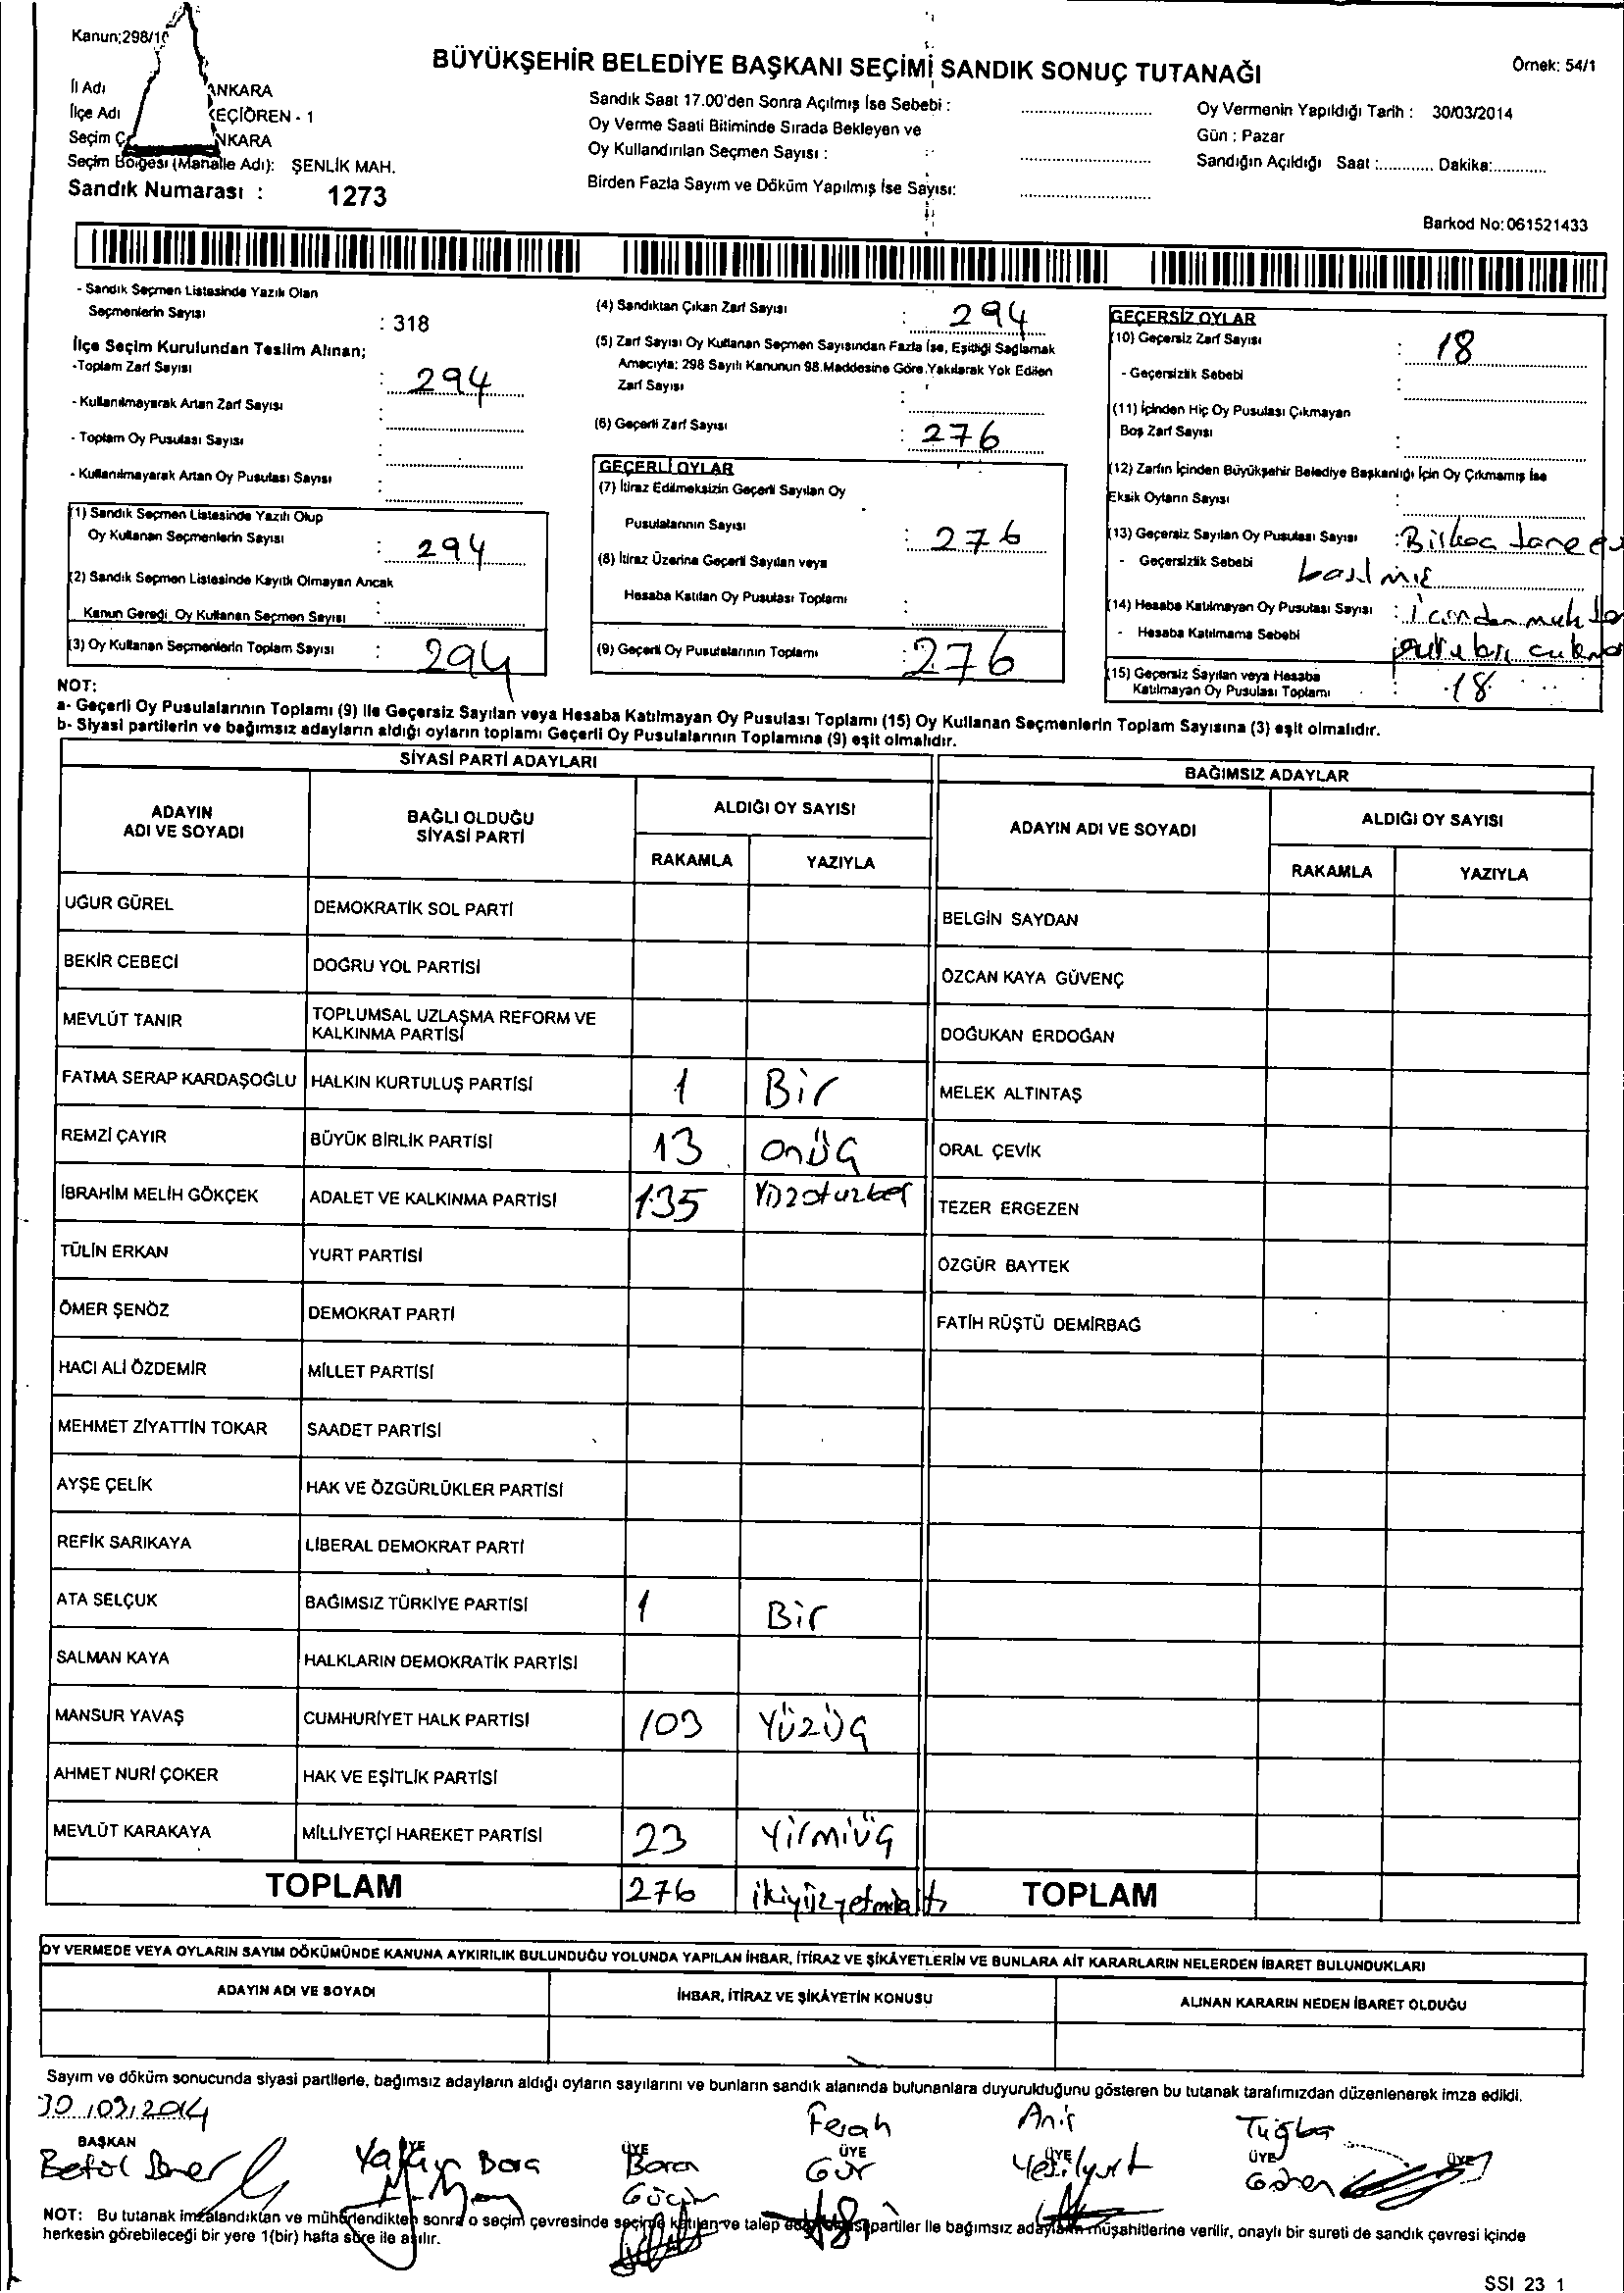 Kanun;298/10
BÜYÜKŞEHİR BELEDİYE BAŞKANI SEÇİMİ SANDIK SONUÇ TUTANAĞI
Örnek: 54/1
İl Adı ANKARA
İlçe Adı KEÇİÖREN - 1
Seçim Ç ANKARA
Seçim Bölgesi (Mahalle Adı): ŞENLİK MAH.
Sandık Numarası : 1273
Sandık Saat 17.00'den Sonra Açılmış İse Sebebi :
Oy Verme Saati Bitiminde Sırada Bekleyen ve
Oy Kullandırılan Seçmen Sayısı :
Birden Fazla Sayım ve Döküm Yapılmış İse Sayısı:
Oy Vermenin Yapıldığı Tarih : 30/03/2014
Gün : Pazar
Sandığın Açıldığı Saat :............. Dakika:.............
Barkod No:061521433
- Sandık Seçmen Listesinde Yazılı Olan
Seçmenlerin Sayısı : 318
İlçe Seçim Kurulundan Teslim Alınan;
-Toplam Zarf Sayısı : 294
- Kullanılmayarak Artan Zarf Sayısı :
- Toplam Oy Pusulası Sayısı :
- Kullanılmayarak Artan Oy Pusulası Sayısı :
(1) Sandık Seçmen Listesinde Yazılı Olup
Oy Kullanan Seçmenlerin Sayısı : 294
(2) Sandık Seçmen Listesinde Kayıtlı Olmayan Ancak
Kanun Gereği Oy Kullanan Seçmen Sayısı :
(3) Oy Kullanan Seçmenlerin Toplam Sayısı : 294
(4) Sandıktan Çıkan Zarf Sayısı : 294
(5) Zarf Sayısı Oy Kullanan Seçmen Sayısından Fazla İse, Eşitliği Sağlamak
Amacıyla; 298 Sayılı Kanunun 98.Maddesine Göre Yakılarak Yok Edilen
Zarf Sayısı :
(6) Geçerli Zarf Sayısı : 276
GEÇERLİ OYLAR
(7) İtiraz Edilmeksizin Geçerli Sayılan Oy
Pusulalarının Sayısı : 276
(8) İtiraz Üzerine Geçerli Sayılan veya
Hesaba Katılan Oy Pusulası Toplamı :
(9) Geçerli Oy Pusulalarının Toplamı : 276
GEÇERSİZ OYLAR
(10) Geçersiz Zarf Sayısı : 18
- Geçersizlik Sebebi :
(11) İçinden Hiç Oy Pusulası Çıkmayan
Boş Zarf Sayısı :
(12) Zarfın İçinden Büyükşehir Belediye Başkanlığı İçin Oy Çıkmamış İse
Eksik Oyların Sayısı :
(13) Geçersiz Sayılan Oy Pusulası Sayısı :
- Geçersizlik Sebebi
(14) Hesaba Katılmayan Oy Pusulası Sayısı :
- Hesaba Katılmama Sebebi
(15) Geçersiz Sayılan veya Hesaba
Katılmayan Oy Pusulası Toplamı : 18
NOT:
a- Geçerli Oy Pusulalarının Toplamı (9) ile Geçersiz Sayılan veya Hesaba Katılmayan Oy Pusulası Toplamı (15) Oy Kullanan Seçmenlerin Toplam Sayısına (3) eşit olmalıdır.
b- Siyasi partilerin ve bağımsız adayların aldığı oyların toplamı Geçerli Oy Pusulalarının Toplamına (9) eşit olmalıdır.
SİYASİ PARTİ ADAYLARI
BAĞIMSIZ ADAYLAR
ADAYIN
ADI VE SOYADI
BAĞLI OLDUĞU
SİYASİ PARTİ
ALDIĞI OY SAYISI
RAKAMLA YAZIYLA
ADAYIN ADI VE SOYADI
ALDIĞI OY SAYISI
RAKAMLA YAZIYLA
UĞUR GÜREL DEMOKRATİK SOL PARTİ BELGİN SAYDAN
BEKİR CEBECİ DOĞRU YOL PARTİSİ ÖZCAN KAYA GÜVENÇ
MEVLÜT TANIR TOPLUMSAL UZLAŞMA REFORM VE
KALKINMA PARTİSİ DOĞUKAN ERDOĞAN
FATMA SERAP KARDAŞOĞLU HALKIN KURTULUŞ PARTİSİ 1 Bir MELEK ALTINTAŞ
REMZİ ÇAYIR BÜYÜK BİRLİK PARTİSİ 13 onüç ORAL ÇEVİK
İBRAHİM MELİH GÖKÇEK ADALET VE KALKINMA PARTİSİ 135 Yüzotuzbeş TEZER ERGEZEN
TÜLİN ERKAN YURT PARTİSİ ÖZGÜR BAYTEK
ÖMER ŞENÖZ DEMOKRAT PARTİ FATİH RÜŞTÜ DEMİRBAĞ
HACI ALİ ÖZDEMİR MİLLET PARTİSİ
MEHMET ZİYATTİN TOKAR SAADET PARTİSİ
AYŞE ÇELİK HAK VE ÖZGÜRLÜKLER PARTİSİ
REFİK SARIKAYA LİBERAL DEMOKRAT PARTİ
ATA SELÇUK BAĞIMSIZ TÜRKİYE PARTİSİ 1 Bir
SALMAN KAYA HALKLARIN DEMOKRATİK PARTİSİ
MANSUR YAVAŞ CUMHURİYET HALK PARTİSİ 103 Yüzüç
AHMET NURİ ÇOKER HAK VE EŞİTLİK PARTİSİ
MEVLÜT KARAKAYA MİLLİYETÇİ HAREKET PARTİSİ 23 Yirmiüç
TOPLAM 276 ikiyüzyetmişaltı TOPLAM
OY VERMEDE VEYA OYLARIN SAYIM DÖKÜMÜNDE KANUNA AYKIRILIK BULUNDUĞU YOLUNDA YAPILAN İHBAR, İTİRAZ VE ŞİKÂYETLERİN VE BUNLARA AİT KARARLARIN NELERDEN İBARET BULUNDUKLARI
ADAYIN ADI VE SOYADI İHBAR, İTİRAZ VE ŞİKÂYETİN KONUSU ALINAN KARARIN NEDEN İBARET OLDUĞU
Sayım ve döküm sonucunda siyasi partilerle, bağımsız adayların aldığı oyların sayılarını ve bunların sandık alanında bulunanlara duyurulduğunu gösteren bu tutanak tarafımızdan düzenlenerek imza edildi.
30/03/2014
Ferah Anıl Tuğba
BAŞKAN ÜYE ÜYE ÜYE ÜYE ÜYE ÜYE
Yalçın Bora Boran Gür Yeşilyurt
NOT: Bu tutanak imzalandıktan ve mühürlendikten sonra o seçim çevresinde seçime katılan ve talep eden siyasi partiler ile bağımsız adayların müşahitlerine verilir, onaylı bir sureti de sandık çevresi içinde
herkesin görebileceği bir yere 1(bir) hafta süre ile asılır.
SSI 23 1